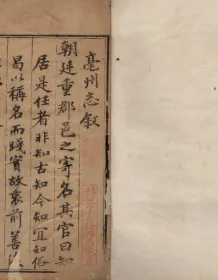 亳州志叙
朝廷重郡邑之寄名其官曰知
居是任者非知古知今知宜知俗
曷以稱名而踐實故裒前善以